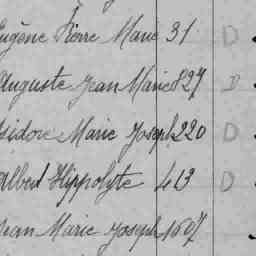 Eugène Pierre Marie 31 D
Auguste Jean Marie 827 D
Isidore Marie Joseph 220 D
Albert Hippolyte 413 D
Jean Marie Joseph 1607